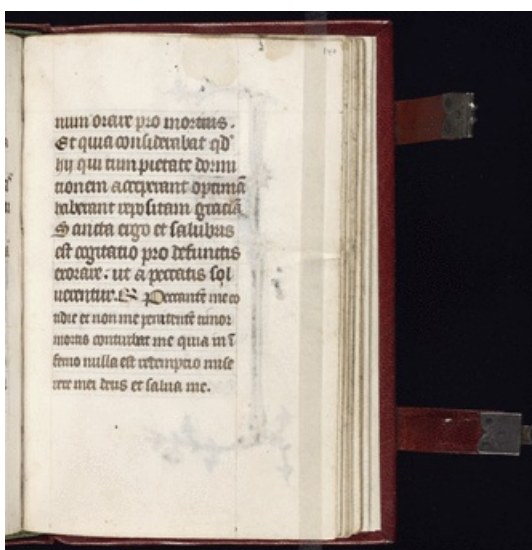 num orare pro mortuis.
Et quia considerabat qd
hy qui cum pietate dormi
tionem acceperant optimā
haberant repositam graciā
Sancta ergo et salubris
est cogitatio pro defunctis
exorare. ut a peccatis sol
uerentur. R Peccantē me co
tidie et non me penitentē timor
mortis conturbat me quia in ī
ferno nulla est redempcio mise
rere mei deus et salua me.